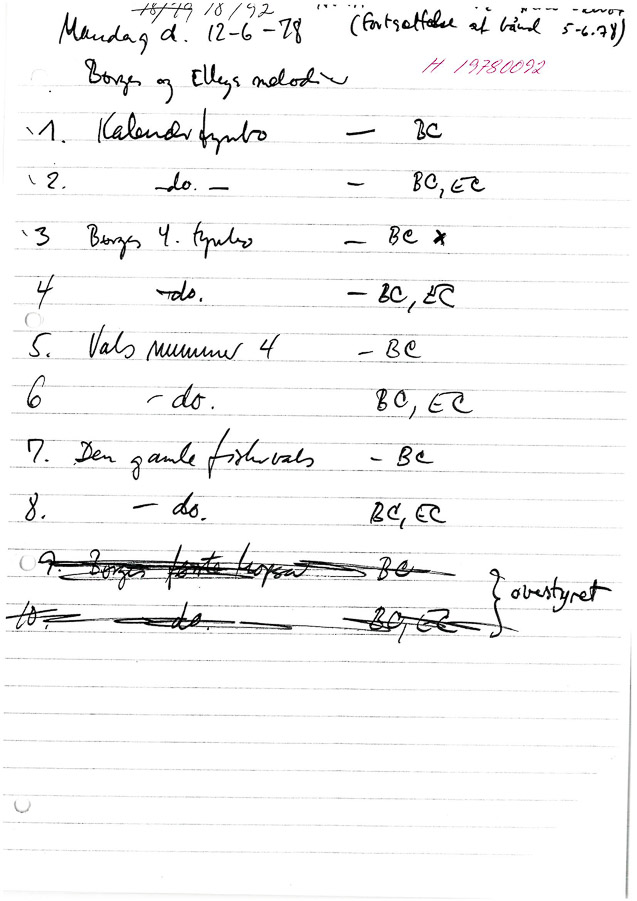 18/49 18/92
Mandag d. 12-6-78 (Fortsættelse af bånd 5-6.78)
H 19780092
Børges og Ellys melodier
1. Kalender tyrolo — BC
2. — do. — — BC, EC
3 Børges 4. tyrolo — BC x
4 — do. — BC, EC
5. Vals nummer 4 — BC
6 — do. BC, EC
7. Den gamle fiskervals — BC
8. — do. BC, EC
9. Børges første hopsa BC
10. do. BC, EC
} overstyret